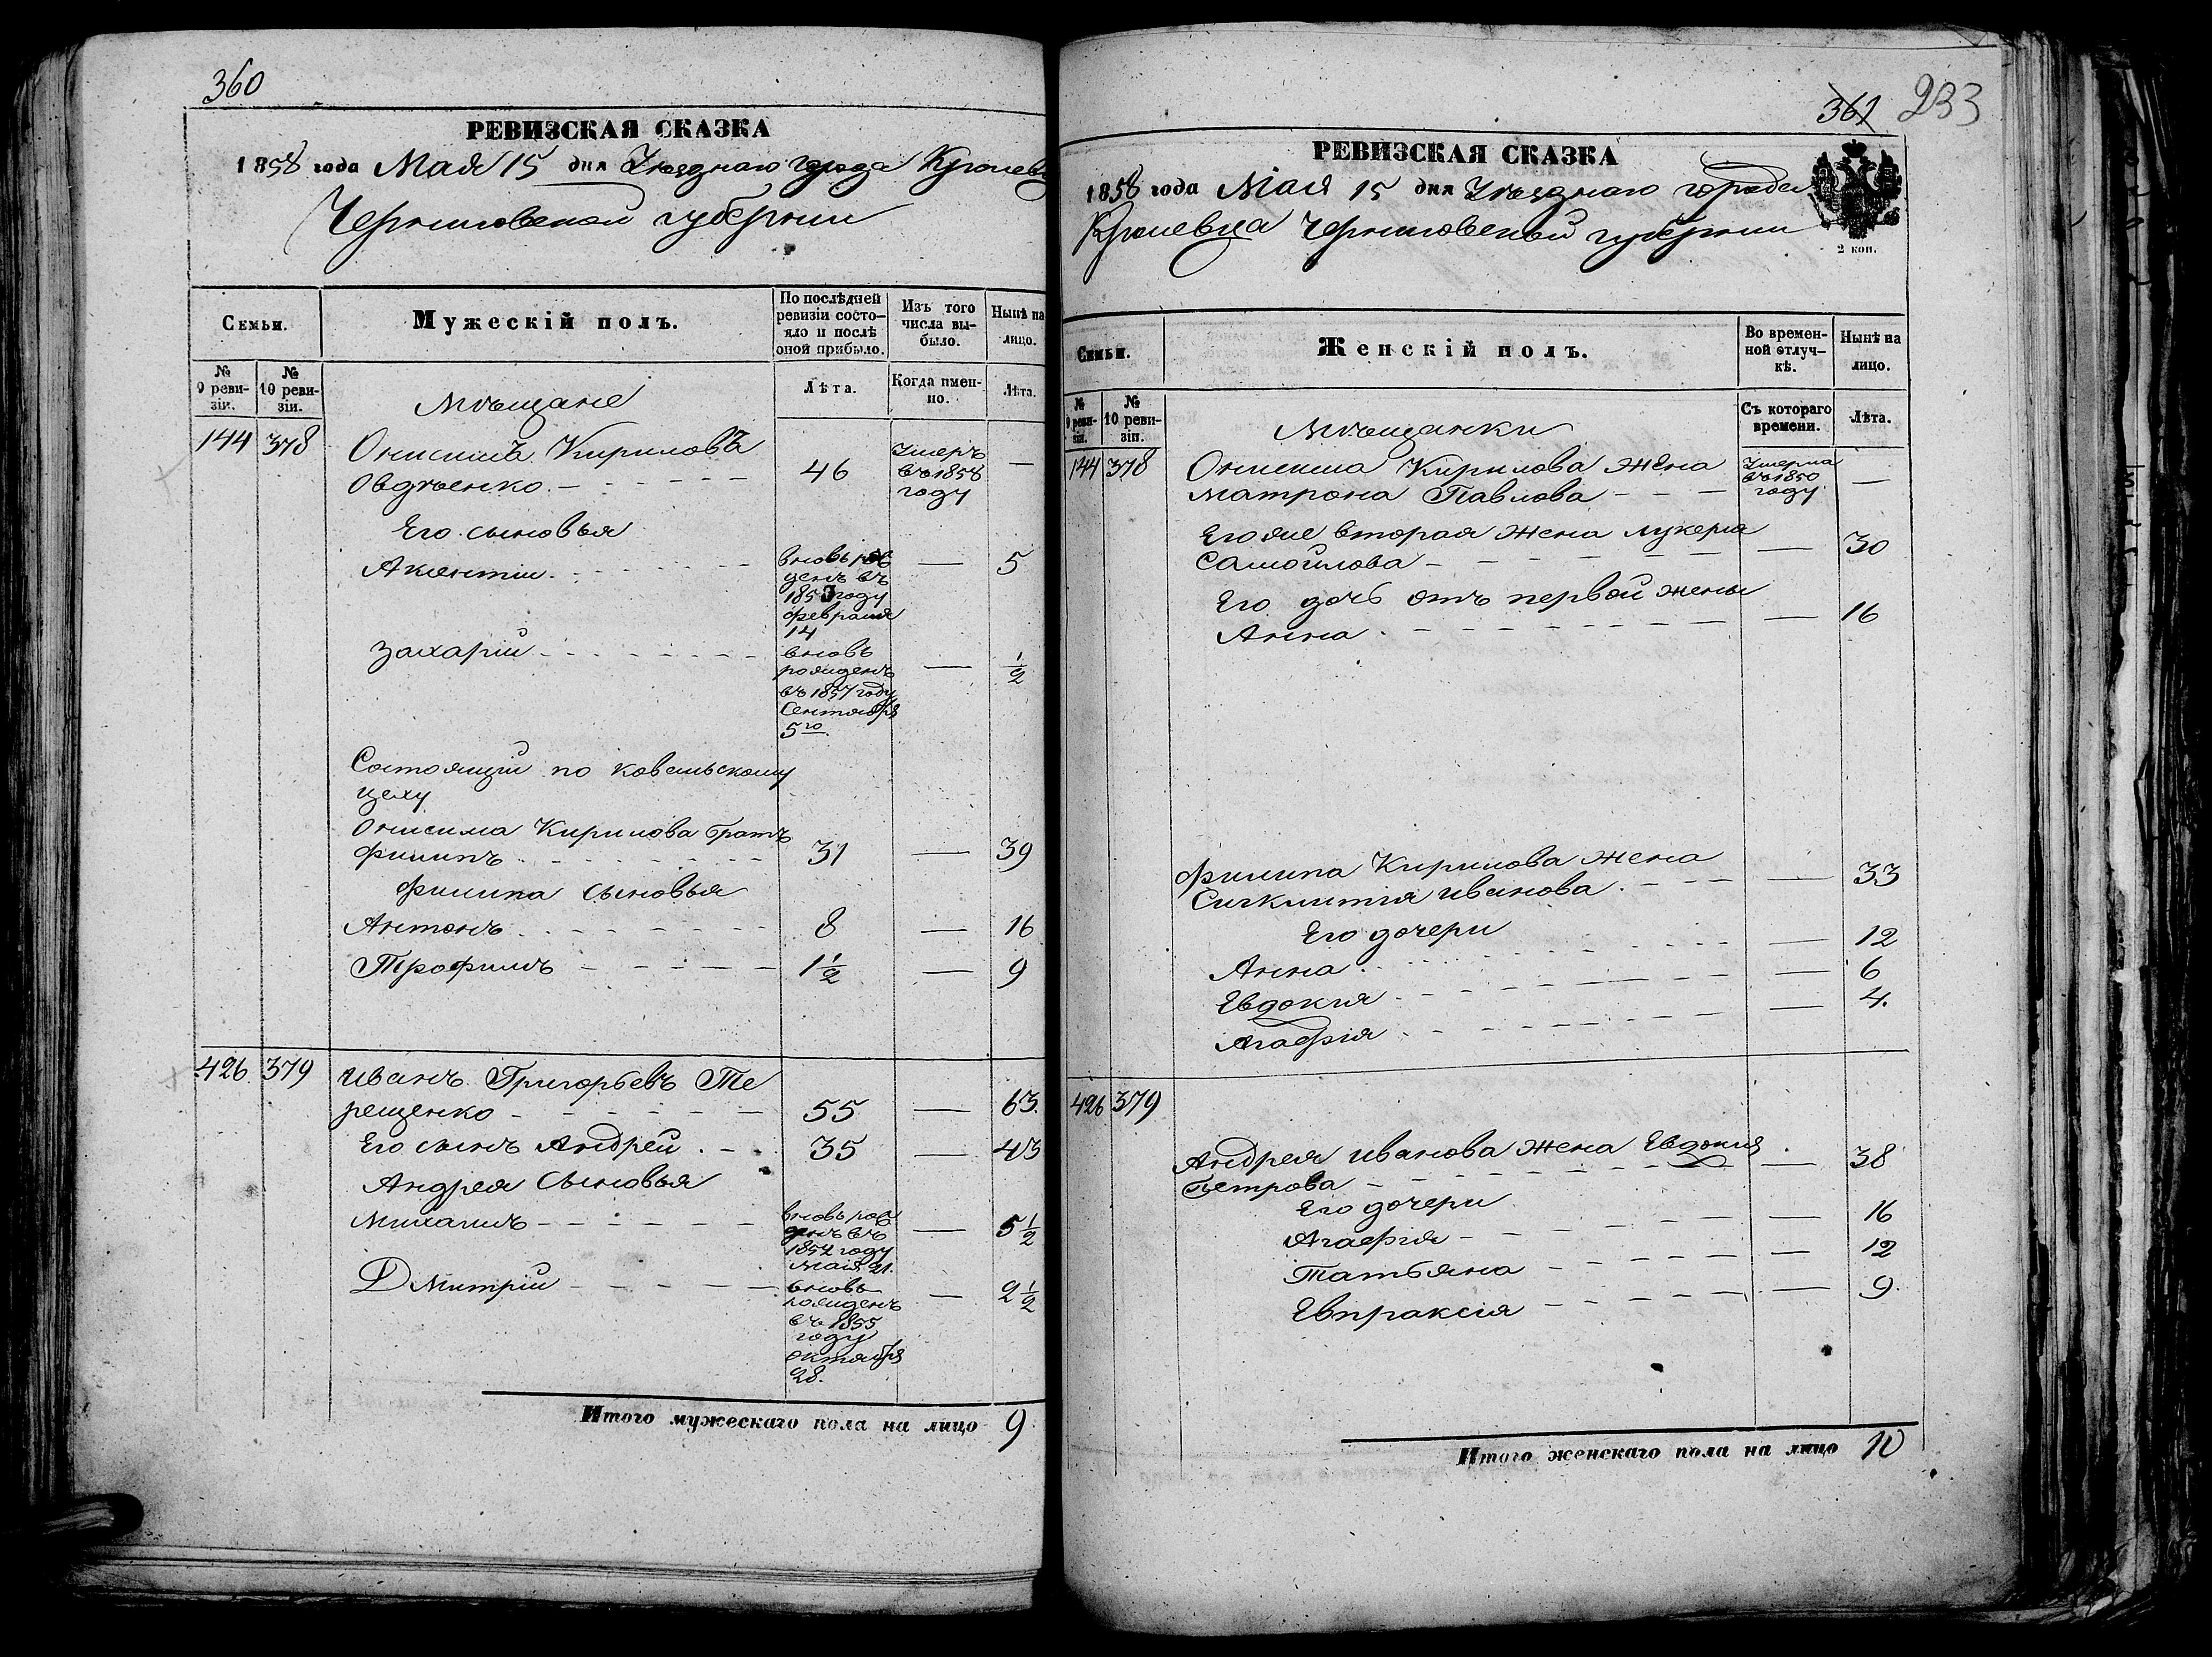 360
РЕВИЗСКАЯ СКАЗКА
1858 года Мая 15 дня Уѣзднаго города Кролевц
Черниговской губернии
Семьи.
Мужескій полъ.
По послѣдней ревизіи состо-
яло и послѣ
оной прибыло.
Изъ того
числа вы-
было.
Нынѣ на
лицо.
№
9 реви-
зіи.
№
10 реви-
зіи.
Мѣщане
Лѣта.
Когда имен-
но.
Лѣта.
144 378 Онисимъ Кириловъ
Овдѣенко 46 Умеръ
въ 1858
году —
Его сыновья
Аксентій вновь рож
денъ въ
1853 году
февраля
14 — 5
Захарій вновь
рожденъ
въ 1857 году
Сентября
5го — 1/2
Состоящіи по ковальскому
цеху
Онисима Кирилова братъ
Филипъ 31 — 39
Филипа сыновья
Антонъ 8 — 16
Трофимъ 1 1/2 — 9
426 379 Иванъ Григорьевъ Те
рещенко 55 — 63.
Его сынъ Андрей 35 — 43
Андрея Сыновья
Михаилъ вновь рож
денъ въ
1852 году
мая 21. — 5 1/2
Дмитрій вновь
рожденъ
въ 1855
году
октября
28. — 2 1/2
Итого мужескаго пола на лицо 9
361 233
РЕВИЗСКАЯ СКАЗКА
1858 года Мая 15 дня Уѣзднаго города
Кролевца Черниговской губернии
2 коп.
Семьи.
Женскій полъ.
Во времен-
ной отлуч-
кѣ.
Нынѣ на
лицо.
№
9 реви-
зіи.
№
10 реви-
зіи.
Мѣщанки
Съ котораго
времени.
Лѣта.
144 378 Онисима Кирилова жена
Матрона Павлова Умерла
въ 1850
году —
Его же вторая жена Лукерія
Самойлова — 30
Его дочь отъ первой жены
Анна — 16
Филипа Кирилова жена
Сигклитія Иванова — 33
Его дочери
Анна — 12
Евдокия — 6
Агафія — 4.
426 379
Андрея Иванова жена Евдокия
Петрова — 38
Его дочери
Агафія — 16
Татьяна — 12
Евпраксія — 9.
Итого женскаго пола на лицо 10